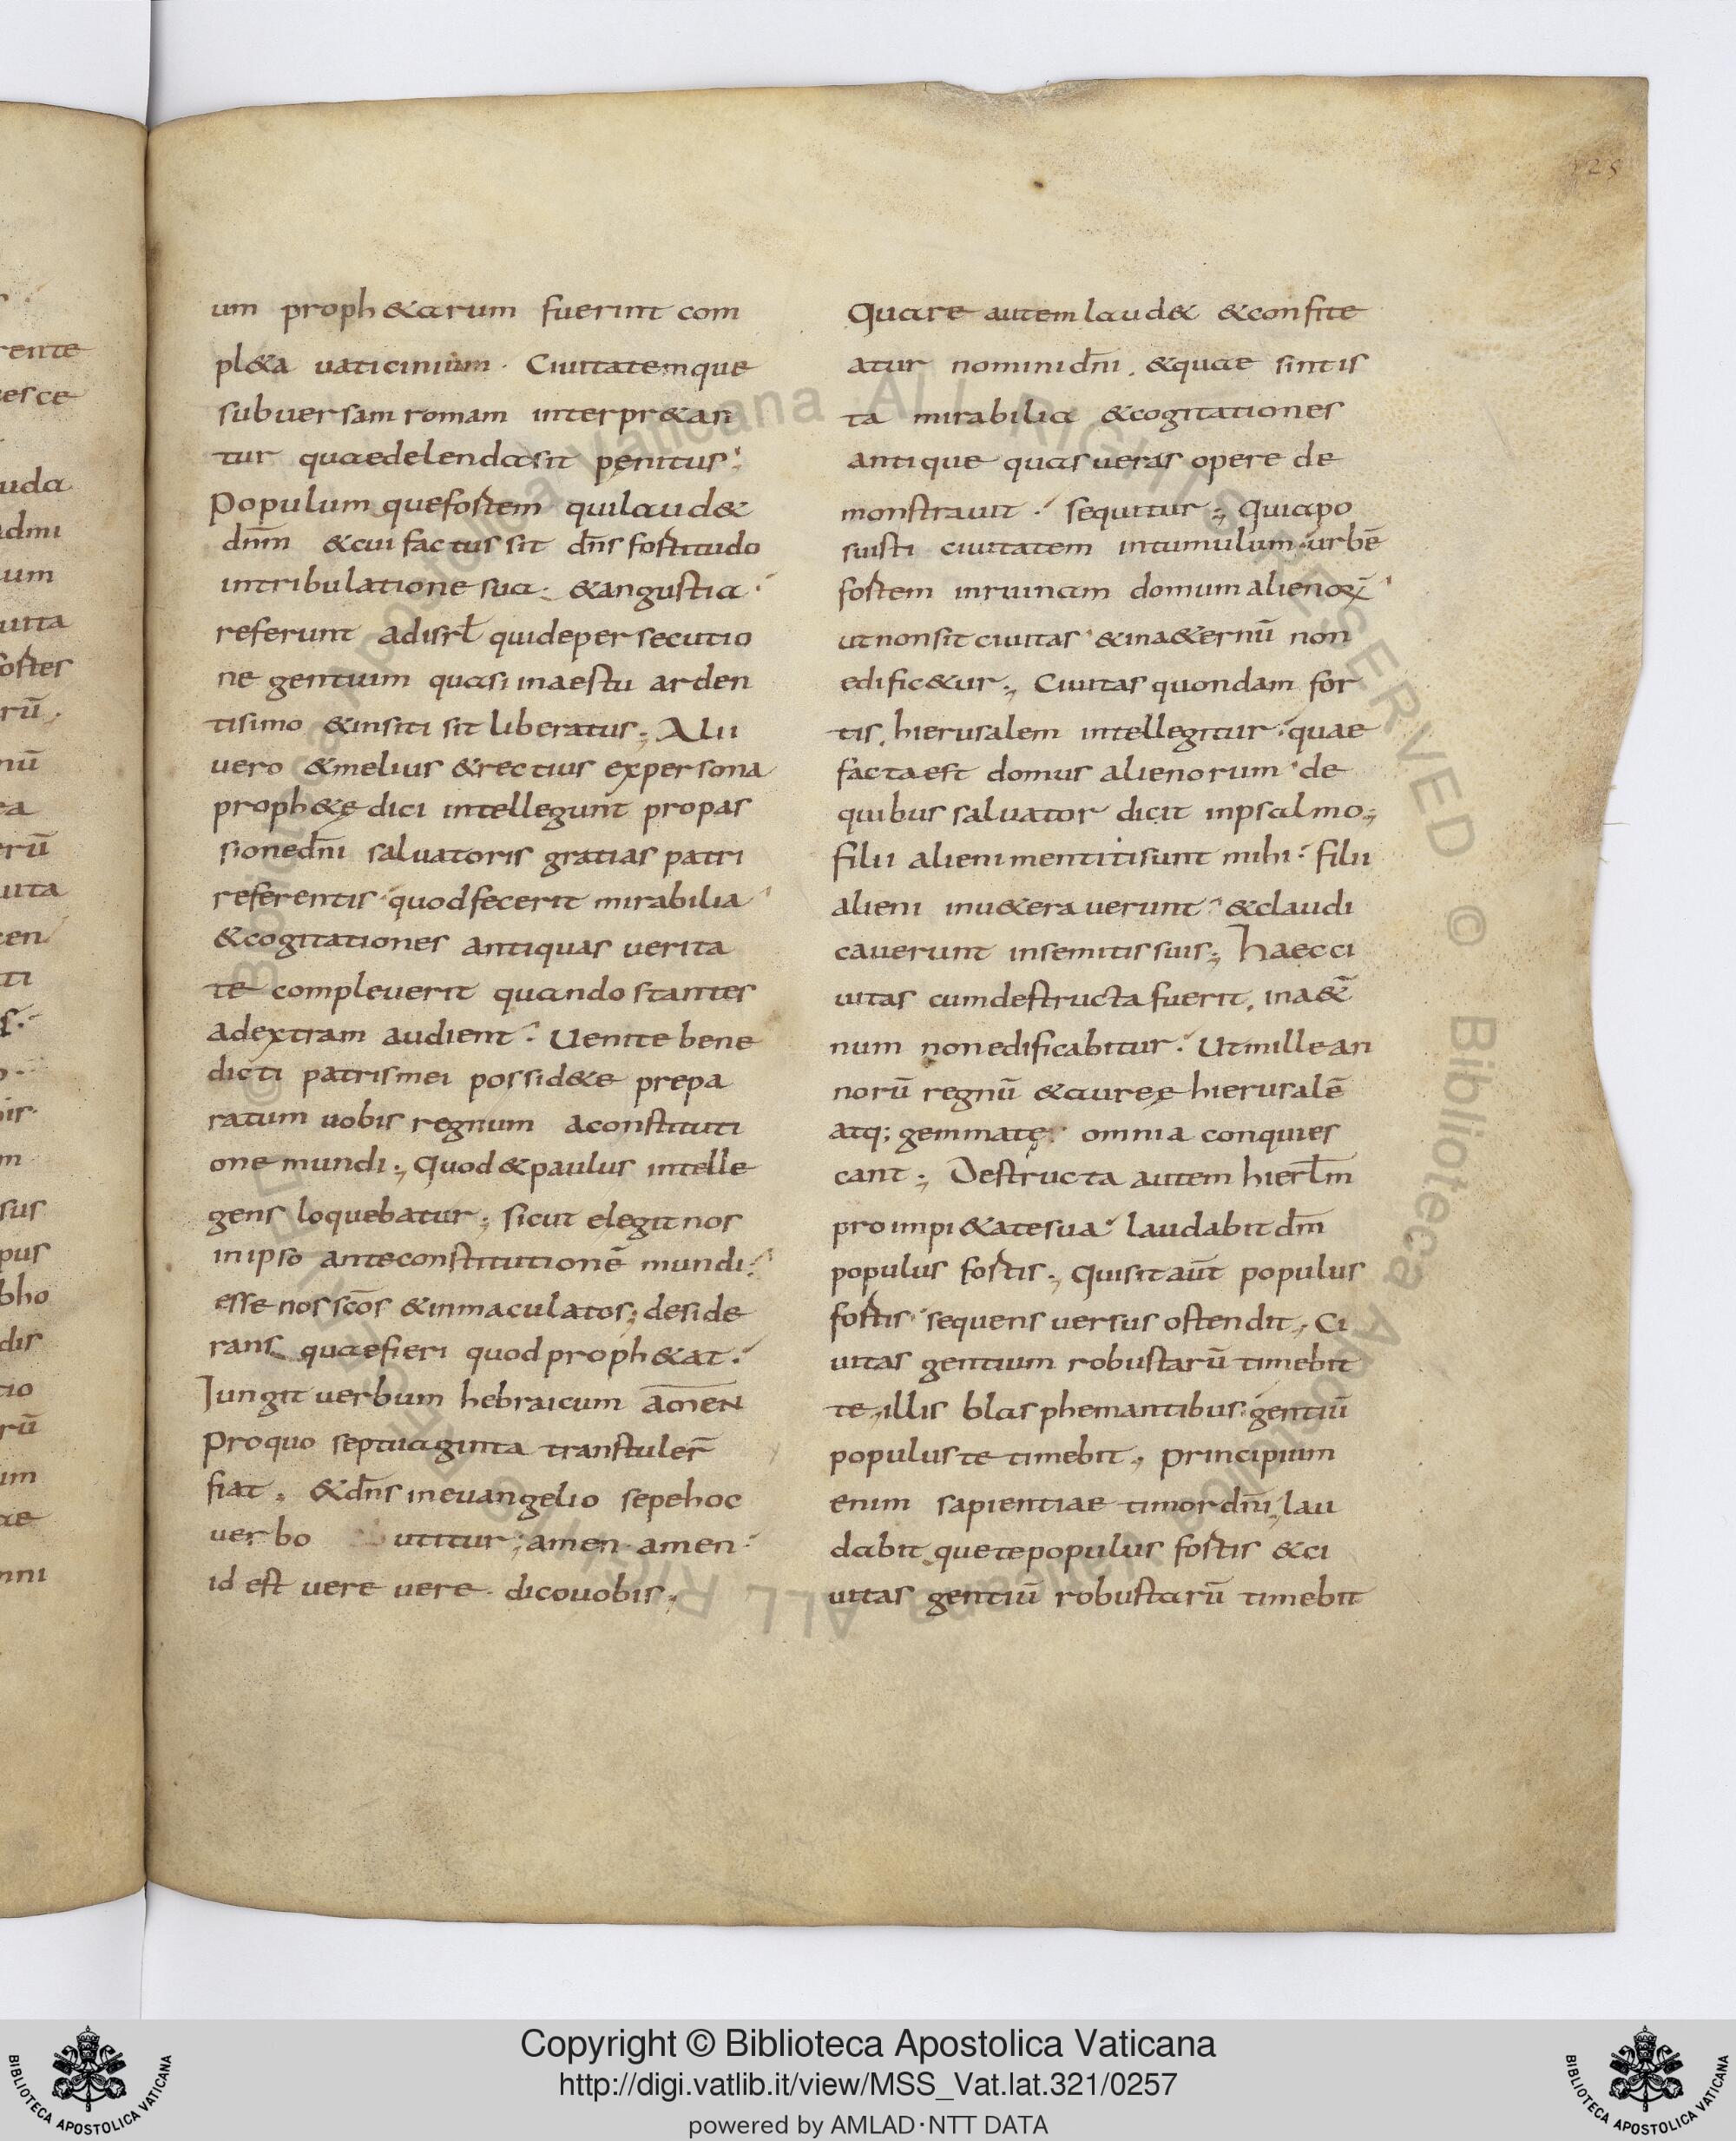 um proph&arum fuerint com
pl&a uaticinium. Ciuitatemque
subuersam romam interpr&an
tur quae delenda sit penitus:
Populum que fortem qui laud&
dn̄m & cui factus sit dn̄s fortitudo
in tribulatione sua. & angustia:
referunt ad isrł qui de persecutio
ne gentium quasi in aestu arden
tisimo & in siti sit liberatus; Alii
uero & melius & rectius ex persona
proph&ę dici intellegunt pro pas
sione dn̄i saluatoris gratias patri
referentis quod fecerit mirabilia
& cogitationes antiquas uerita
te compleuerit quando stantes
ad extram audient: Uenite bene
dicti patris mei possid&e prepa
ratum uobis regnum a constituti
one mundi; Quod & paulus intelle
gens loquebatur; sicut elegit nos
in ipso ante constitutionē mundi:
esse nos scōs & inmaculatos; deside
rans quae fieri quod proph&at:
Iungit uerbum hebraicum amen
Pro quo septuaginta transtuler̄
fiat. & dn̄s in euangelio sepe hoc
uerbo utitur; amen amen:
id est uere uere dico uobis;
Quare autem laud& & confite
atur nomini dn̄i. & quae sint is
ta mirabilia & cogitationes
antique quas ueras opere de
monstrauit: sequitur; Quia po
suisti ciuitatem in tumulum urbē
fortem in ruinam domum alienoꝝ
ut non sit ciuitas & in a&ernū non
edific&ur; Ciuitas quondam for
tis. hierusalem intellegitur: quae
facta est domus alienorum de
quibus saluator dicit in psalmo;
filii alieni mentiti sunt mihi: filii
alieni inu&erauerunt: & claudi
cauerunt in semitis suis; Haec ci
uitas cum destructa fuerit. in a&̄
num non edificabitur: Ut mille an
norū regnū & aureę hierusalē
atq; gemmatę omnia conquies
cant; Destructa autem hierl̄m
pro impi&ate sua: laudabit dn̄m
populus fortis; Quis it aūt populus
fortis: sequens uersus ostendit; Ci
uitas gentium robustarū timebit
te; illis blasphemantibus: gentiū
populus te timebit; Principium
enim sapientiae timor dn̄i; lau
dabit que te populus fortis & ci
uitas gentiū robustarū timebit
Copyright © Biblioteca Apostolica Vaticana
http://digi.vatlib.it/view/MSS_Vat.lat.321/0257
powered by AMLAD·NTT DATA